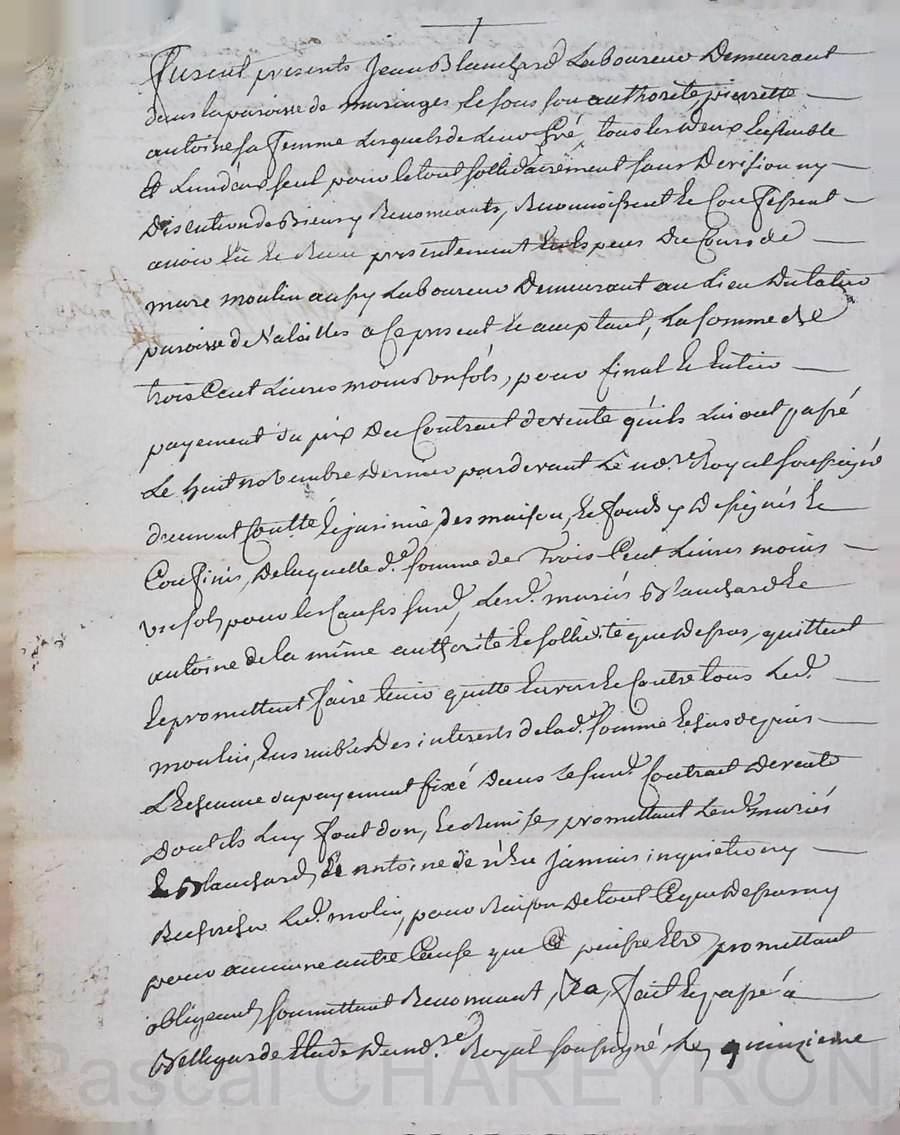 1
Furent presents Jean Blanchard Laboureur Demeurant
dans la paroisse de maringes, Et sous son authorité, pierrette
antoine sa femme Lesquels de Leur gré, tous les deux Ensemble
Et L'un d'eux seul pour le tout sollidairement sans Division ny
Discution de Biens y Renonceants, Reconnoissent Et Confessent
avoir Eü Et Reçu presentement En Especes Du Cours de
marc moulin aussy Laboureur Demeurant au Lieu Du
paroisse de a Ce present Et acceptant, La somme de
trois Cent Livres moins un sols, pour final Et Entier
payement du prix Du Contrat de vente qu'ils Lui ont passé
Le huit novembre Dernier pardevant Le no.re Royal soussigné
d'eument Contté Et des maison, Et fonds y Designés Et
Confinés, De laquelle d.e somme de Trois Cent Livres moins
un sol, pour les Causes susd. Lesd. mariés Blanchard Et
antoine de la même authorité Et sollidité que Dessus, quittent
Et promettent faire tenir quitte Envers Et Contre tous Led.
moulin, Ensemble Des interests de lad.e somme Echus depuis
L'Echeance du payement fixé Dans Le susd. Contrat De vente
Dont ils Luy font don, Et remise, promettant Lesd. mariés
Blanchard, Et antoine de n'En jamais inquieter ny
Rechercher Led. molin, pour Raison De tout Ce que Dessus ny
pour aucune autre Cause que Ce puisse Etre, promettant
obligeant, soumettant Renonceant, &a, fait Et passé à
Bellegarde Etude Dud. no.re Royal soussigné, Le quinzieme
Pascal CHAREYRON